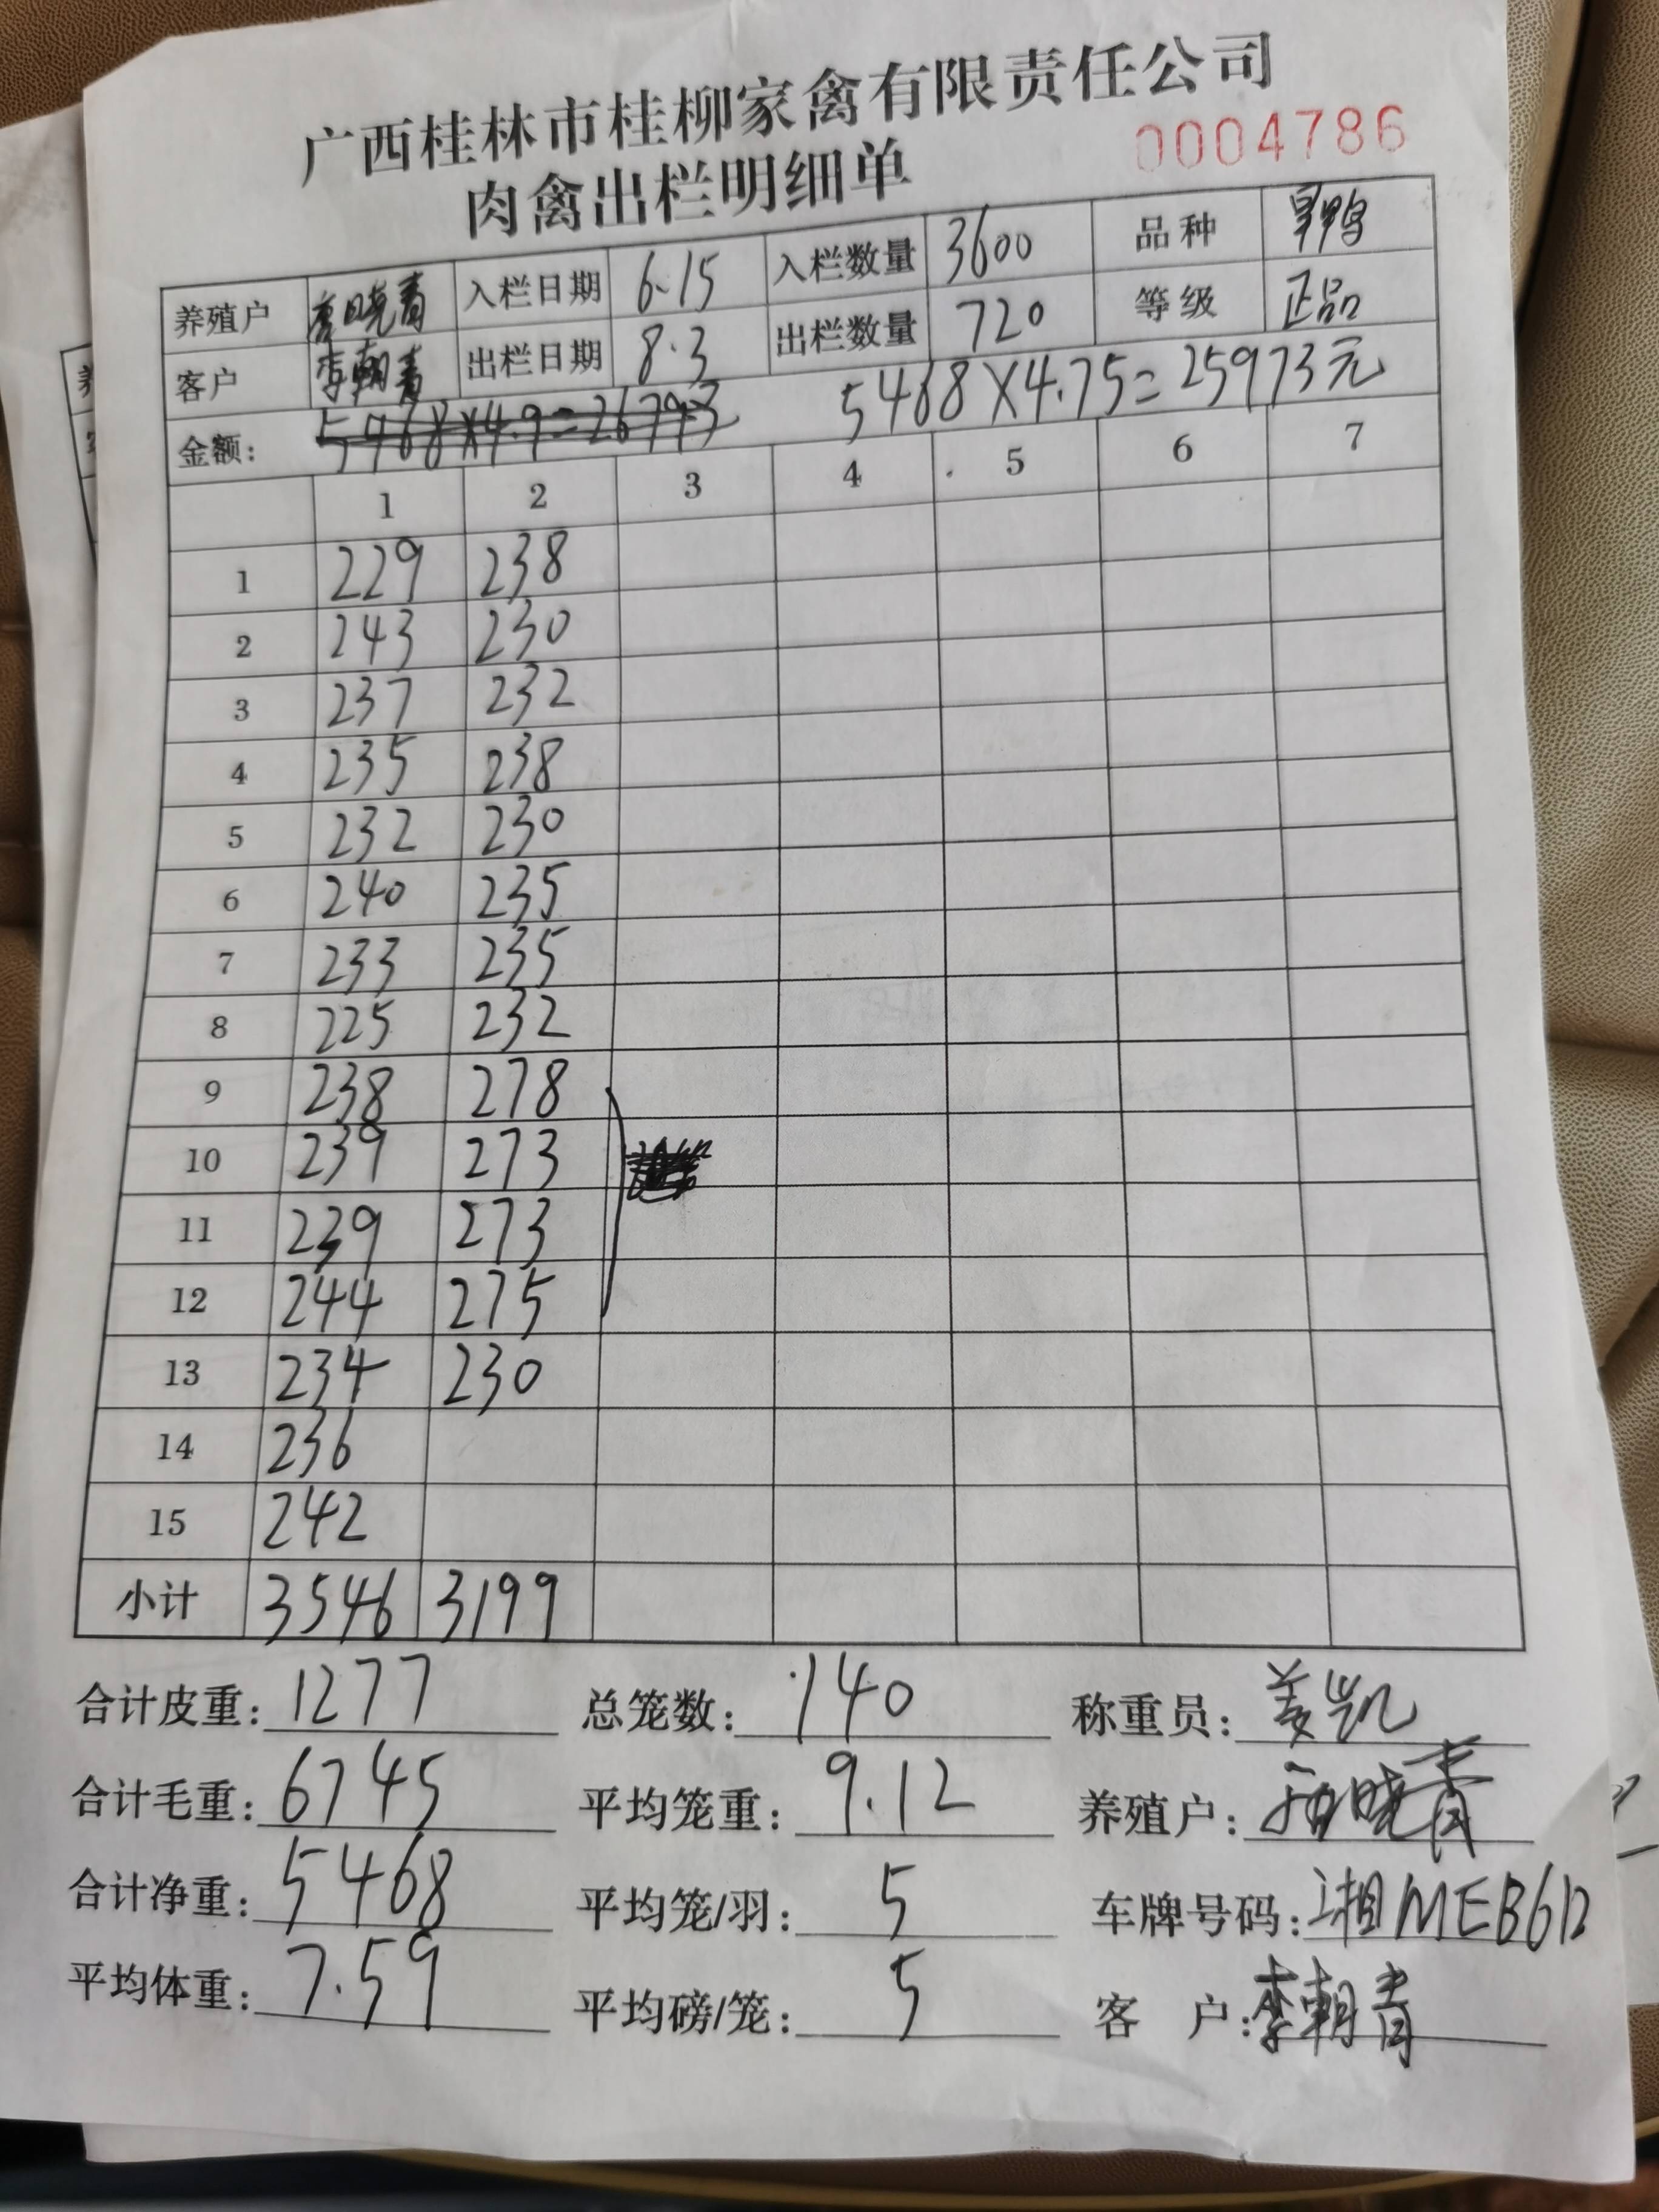 广西桂林市桂柳家禽有限责任公司
肉禽出栏明细单 0004786
养殖户 晓青 入栏日期 6.15 入栏数量 3600 品种 旱鸭
客户 李朝青 出栏日期 8.3 出栏数量 720 等级 正品
金额: 5468×4.9=26793 5468×4.75=25973元
1 2 3 4 5 6 7
1 229 238
2 243 230
3 237 232
4 235 238
5 232 230
6 240 235
7 233 235
8 225 232
9 238 278
10 239 273
11 239 273
12 244 275
13 234 230
14 236
15 242
小计 3546 3199
合计皮重: 1277 总笼数: 140 称重员: 姜凯
合计毛重: 6745 平均笼重: 9.12 养殖户: 晓青
合计净重: 5468 平均笼/羽: 5 车牌号码: 湘MEB612
平均体重: 7.59 平均磅/笼: 5 客 户: 李朝青